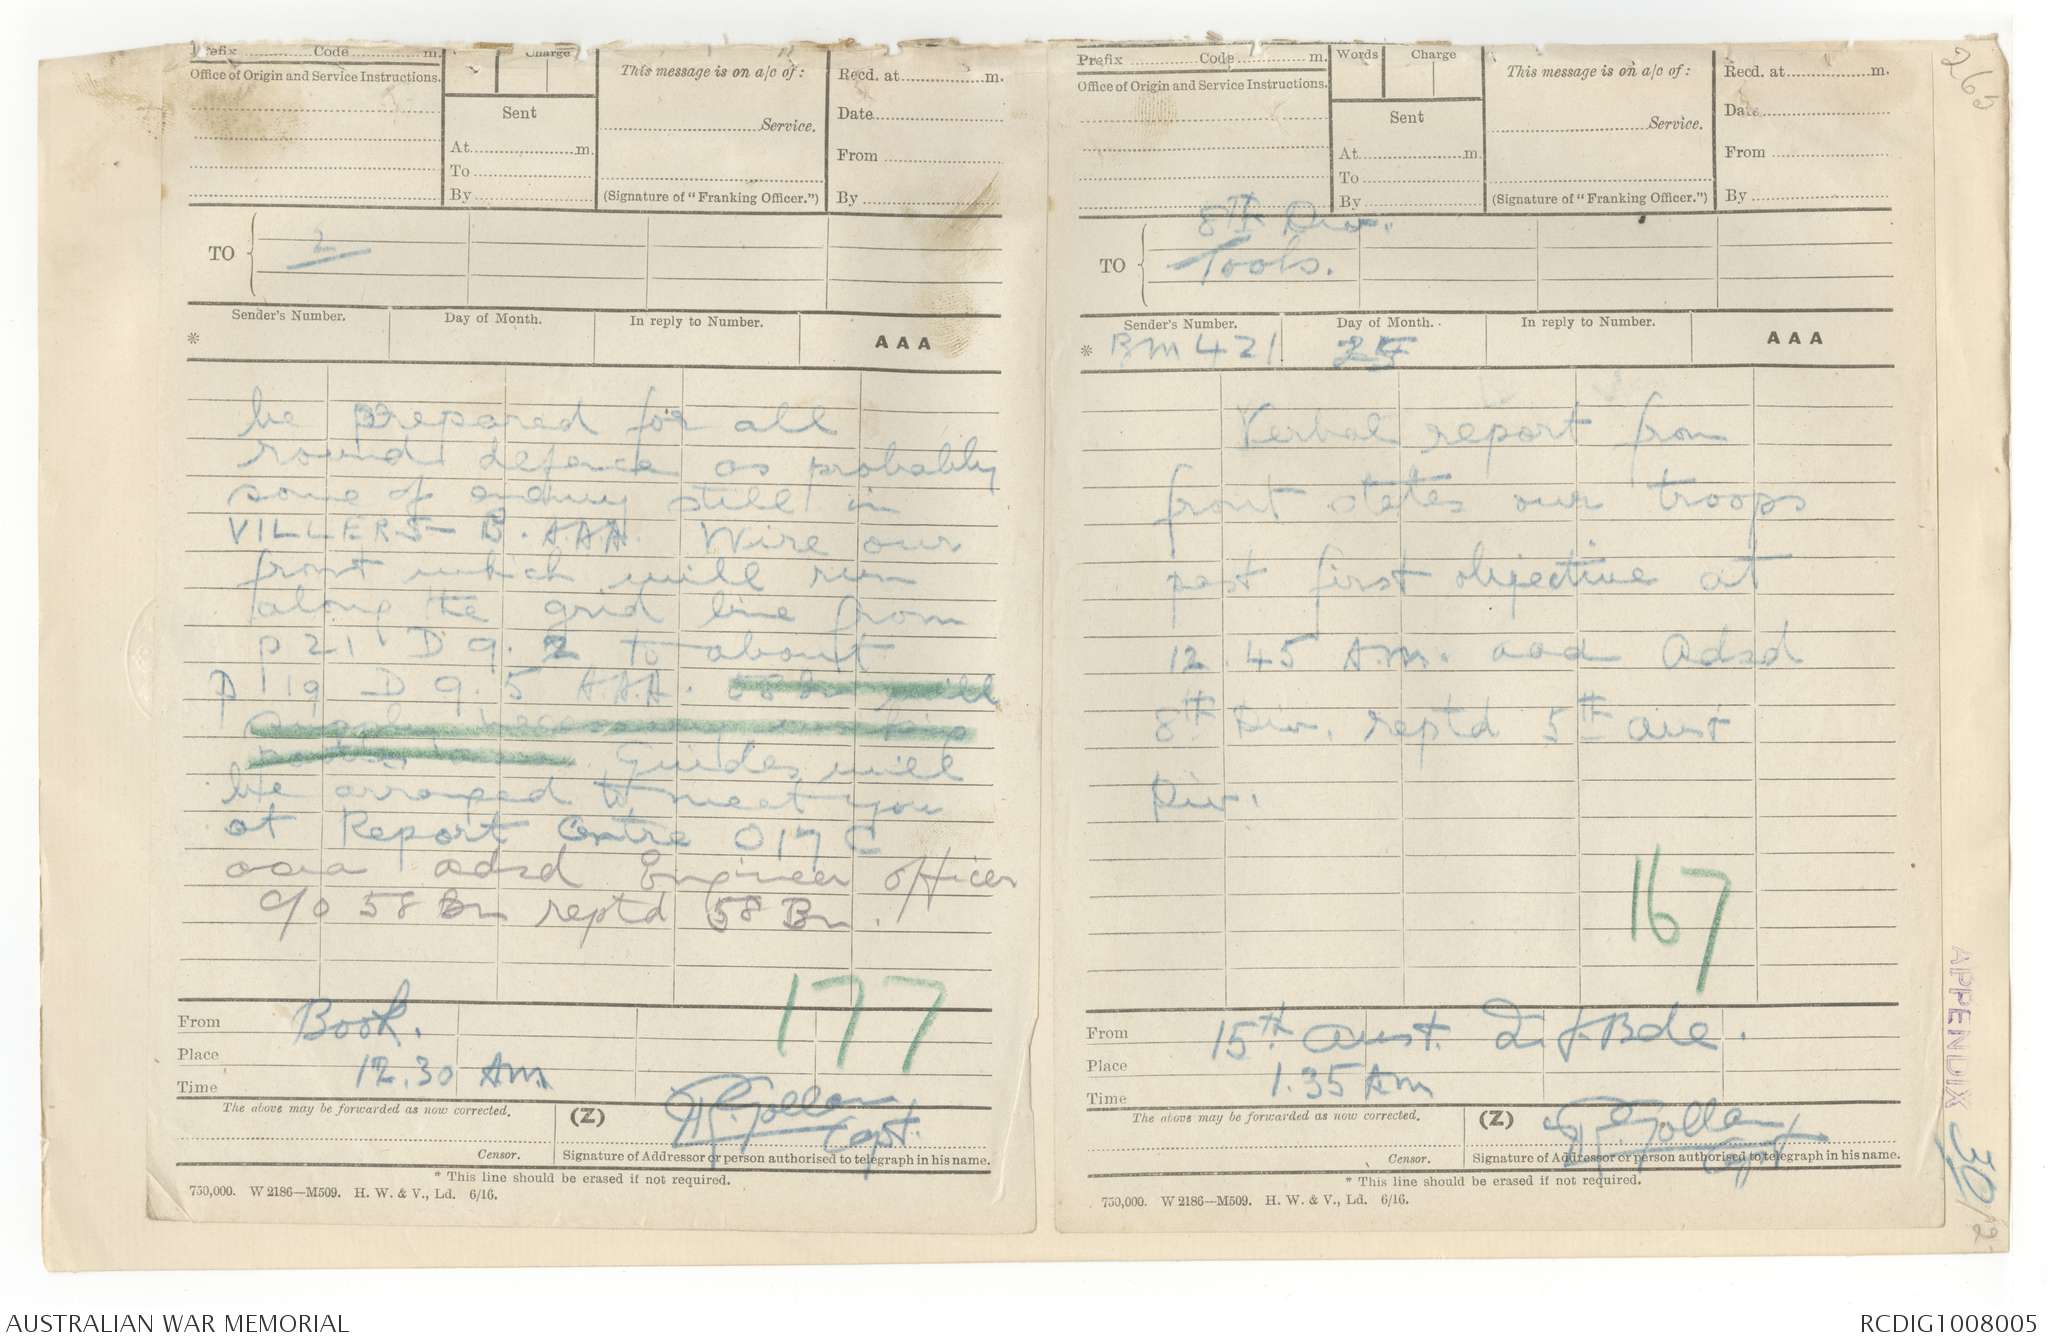 Prefix Code m.
Office of Origin and Service Instructions.
Charge
Sent
At m.
To
By
This message is on a/c of:
Service.
(Signature of "Franking Officer.")
Recd. at m.
Date
From
By
TO
2
Sender's Number.
Day of Month.
In reply to Number.
* AAA
be prepared for all
round defence as probably
some of enemy still in
VILLERS-B. A.A.A. Wire our
front which will run
along the grid line from
P 21 D 9.2 to about
P 19 D 9.5 A.A.A. 58 Bn will
Guides will
be arranged to meet you
at Report Centre O17C
aaa adsd Engineer officer
c/o 58 Bn reptd 58 Bn.
177
From Book.
Place
Time 12.30 AM.
The above may be forwarded as now corrected.
(Z)
Gollan
Capt.
Censor.
Signature of Addressor or person authorised to telegraph in his name.
* This line should be erased if not required.
750,000. W 2186—M509. H. W. & V., Ld. 6/16.
Prefix Code m.
Office of Origin and Service Instructions.
Words Charge
Sent
At m.
To
By
This message is on a/c of:
Service.
(Signature of "Franking Officer.")
Recd. at m.
Date
From
By
265
8TH Div.
TO
Tools.
Sender's Number.
Day of Month.
In reply to Number.
* BM 421 25 AAA
Verbal report from
front states our troops
past first objective at
12.45 A.M. aad Adsd
8th Div. reptd 5th Aust
Div.
167
From 15th Aust. Inf Bde.
Place
Time 1.35 AM
The above may be forwarded as now corrected.
(Z)
Gollan
Capt
Censor.
Signature of Addressor or person authorised to telegraph in his name.
* This line should be erased if not required.
750,000. W 2186—M509. H. W. & V., Ld. 6/16.
APPENDIX 30/2
AUSTRALIAN WAR MEMORIAL
RCDIG1008005